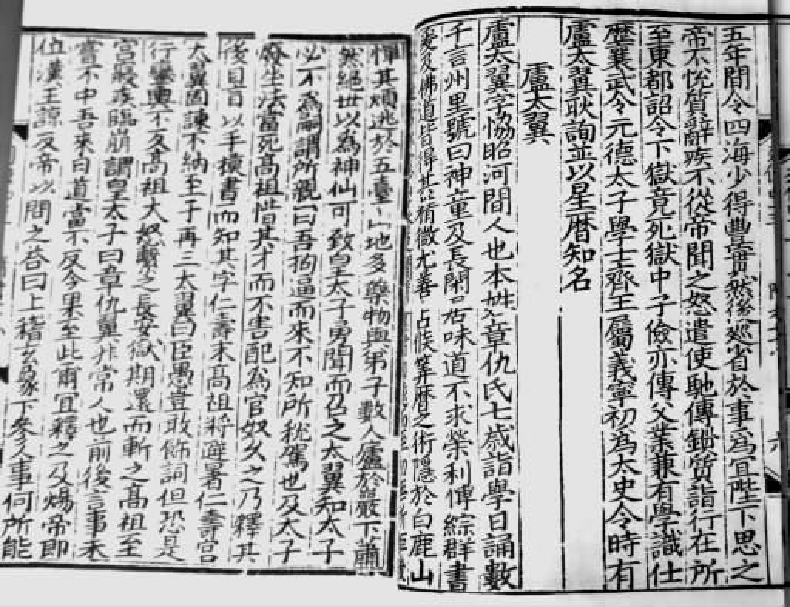 五年間令四海少得豐實然後巡省於事爲宜陛下思之
帝不悅質辭疾不從帝聞之怒遣使馳傳鏁質詣行在所
至東都詔令下獄竟死獄中子儉亦傳父業兼有學識仕
歷襄武令元德太子學士齊王屬義寧初爲太史令時有
盧太翼耿詢並以星曆知名
盧太翼
盧太翼字協昭河間人也本姓章仇氏七歲詣學日誦數
千言州里號曰神童及長閑居味道不求榮利博綜群書
爰及佛道皆得其精微尤善占候筭曆之術隱於白鹿山
憚其煩逃於五臺山地多藥物與弟子數人廬於巖下蕭
然絕世以爲神仙可致皇太子勇聞而召之太翼知太子
必不爲嗣謂所親曰吾拘逼而來不知所稅駕也及太子
廢坐法當死高祖惜其才而不害配爲官奴久之乃釋其
後目盲以手摸書而知其字仁壽末高祖將避暑仁壽宮
太翼固諫不納至于再三太翼曰臣愚豈敢飾詞但恐是
行鑾輿不反高祖大怒繫之長安獄期還而斬之高祖至
宮寢疾臨崩謂皇太子曰章仇翼非常人也前後言事未
嘗不中吾來日道當不反今果至此爾宜釋之及煬帝即
位漢王諒反帝以問之荅曰上稽玄象下參人事何所能